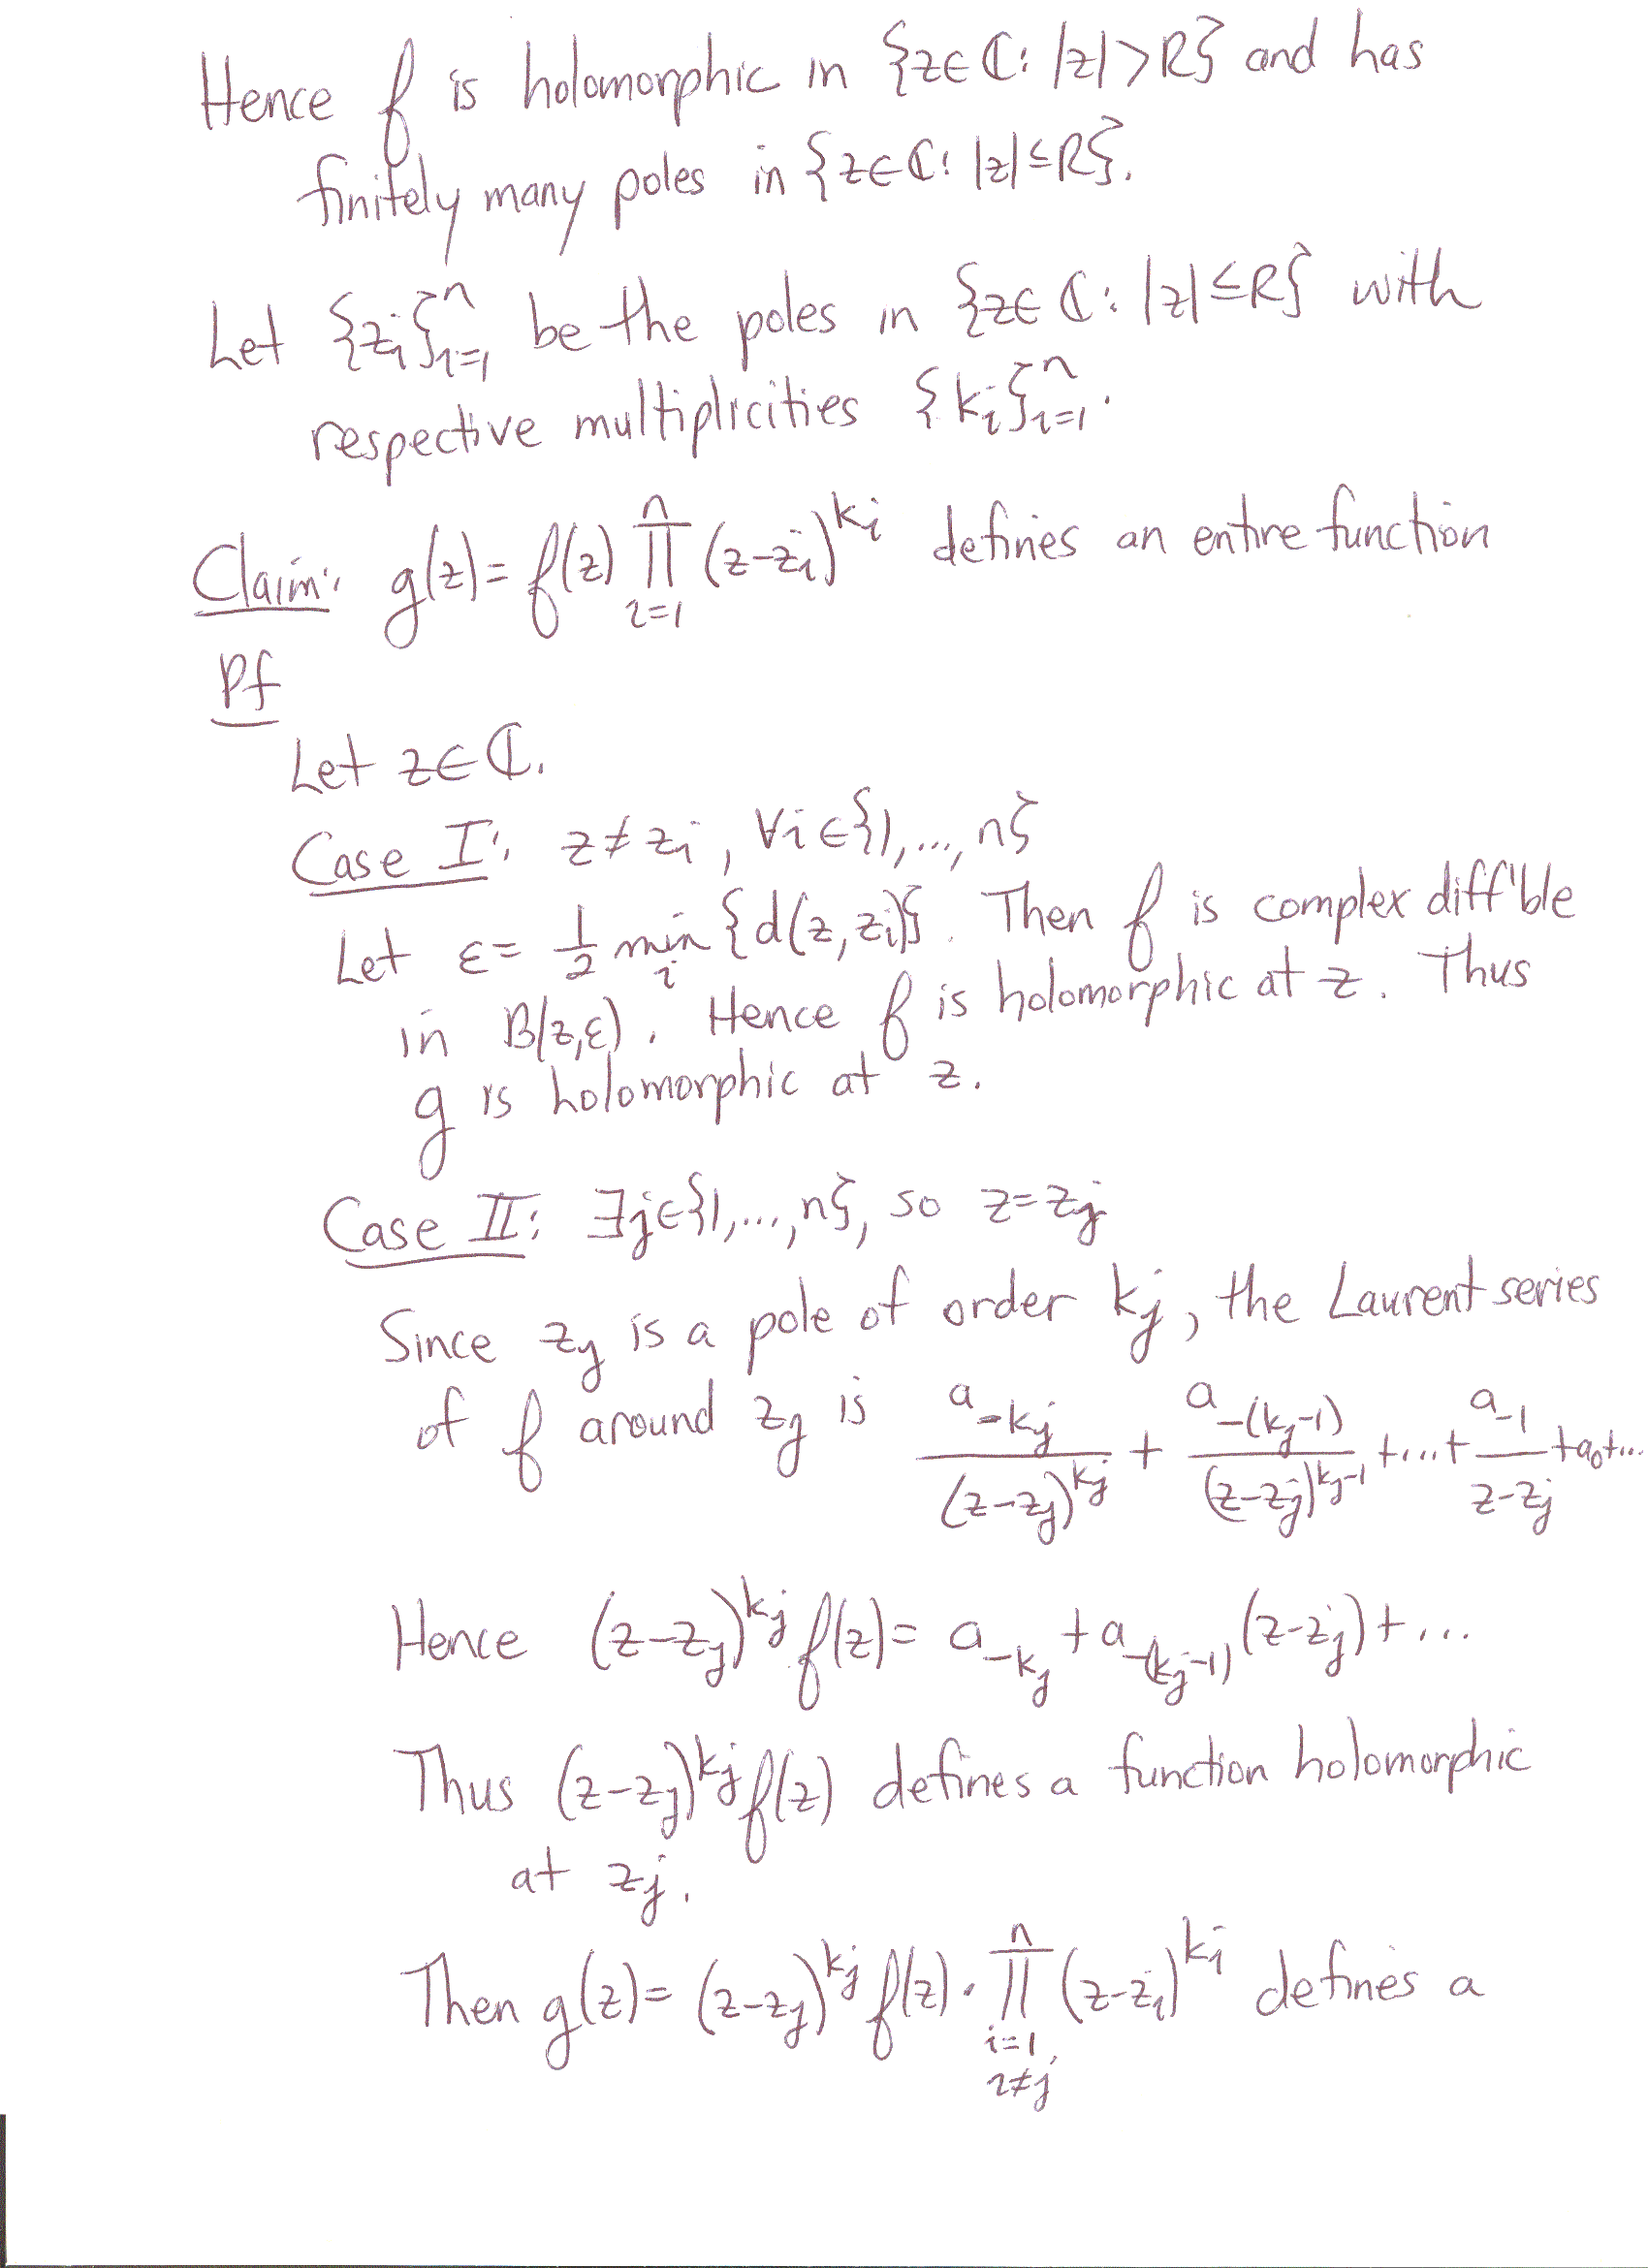 Hence f is holomorphic in {z∈ℂ: |z|>R} and has
finitely many poles in {z∈ℂ: |z|≤R}.
Let {z_i}_{i=1}^n be the poles in {z∈ℂ: |z|≤R} with
respective multiplicities {k_i}_{i=1}^n.
Claim: g(z)= f(z) ∏_{i=1}^n (z-z_i)^{k_i} defines an entire function
Pf
Let z∈ℂ.
Case I: z≠z_i, ∀i∈{1,...,n}
Let ε= 1/2 min_i {d(z,z_i)}. Then f is complex diff'ble
in B(z,ε). Hence f is holomorphic at z. Thus
g is holomorphic at z.
Case II: ∃j∈{1,...,n}, so z=z_j
Since z_j is a pole of order k_j, the Laurent series
of f around z_j is a_{-k_j}/(z-z_j)^{k_j} + a_{-(k_j-1)}/(z-z_j)^{k_j-1} +...+ a_{-1}/(z-z_j) +a_0+...
Hence (z-z_j)^{k_j} f(z)= a_{-k_j} +a_{-(k_j-1)}(z-z_j)+...
Thus (z-z_j)^{k_j} f(z) defines a function holomorphic
at z_j.
Then g(z)= (z-z_j)^{k_j} f(z)· ∏_{i=1, i≠j}^n (z-z_i)^{k_i} defines a